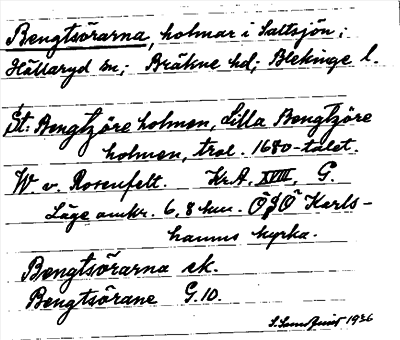 Bengtsörarna, holmar i Saltsjön;
Hällaryd sn; Bräkne hd; Blekinge l.
St: Bengtzöre holmen, Lilla Bengtzöre
holmen, trol. 1680-talet.
W. v. Rosenfelt. Kr.A. XVIII, G.
Läge omkr. 6,8 km. ÖSÖ Karls-
hamns kyrka.
Bengtsörarna ek.
Bengtsörane G.10.
1926